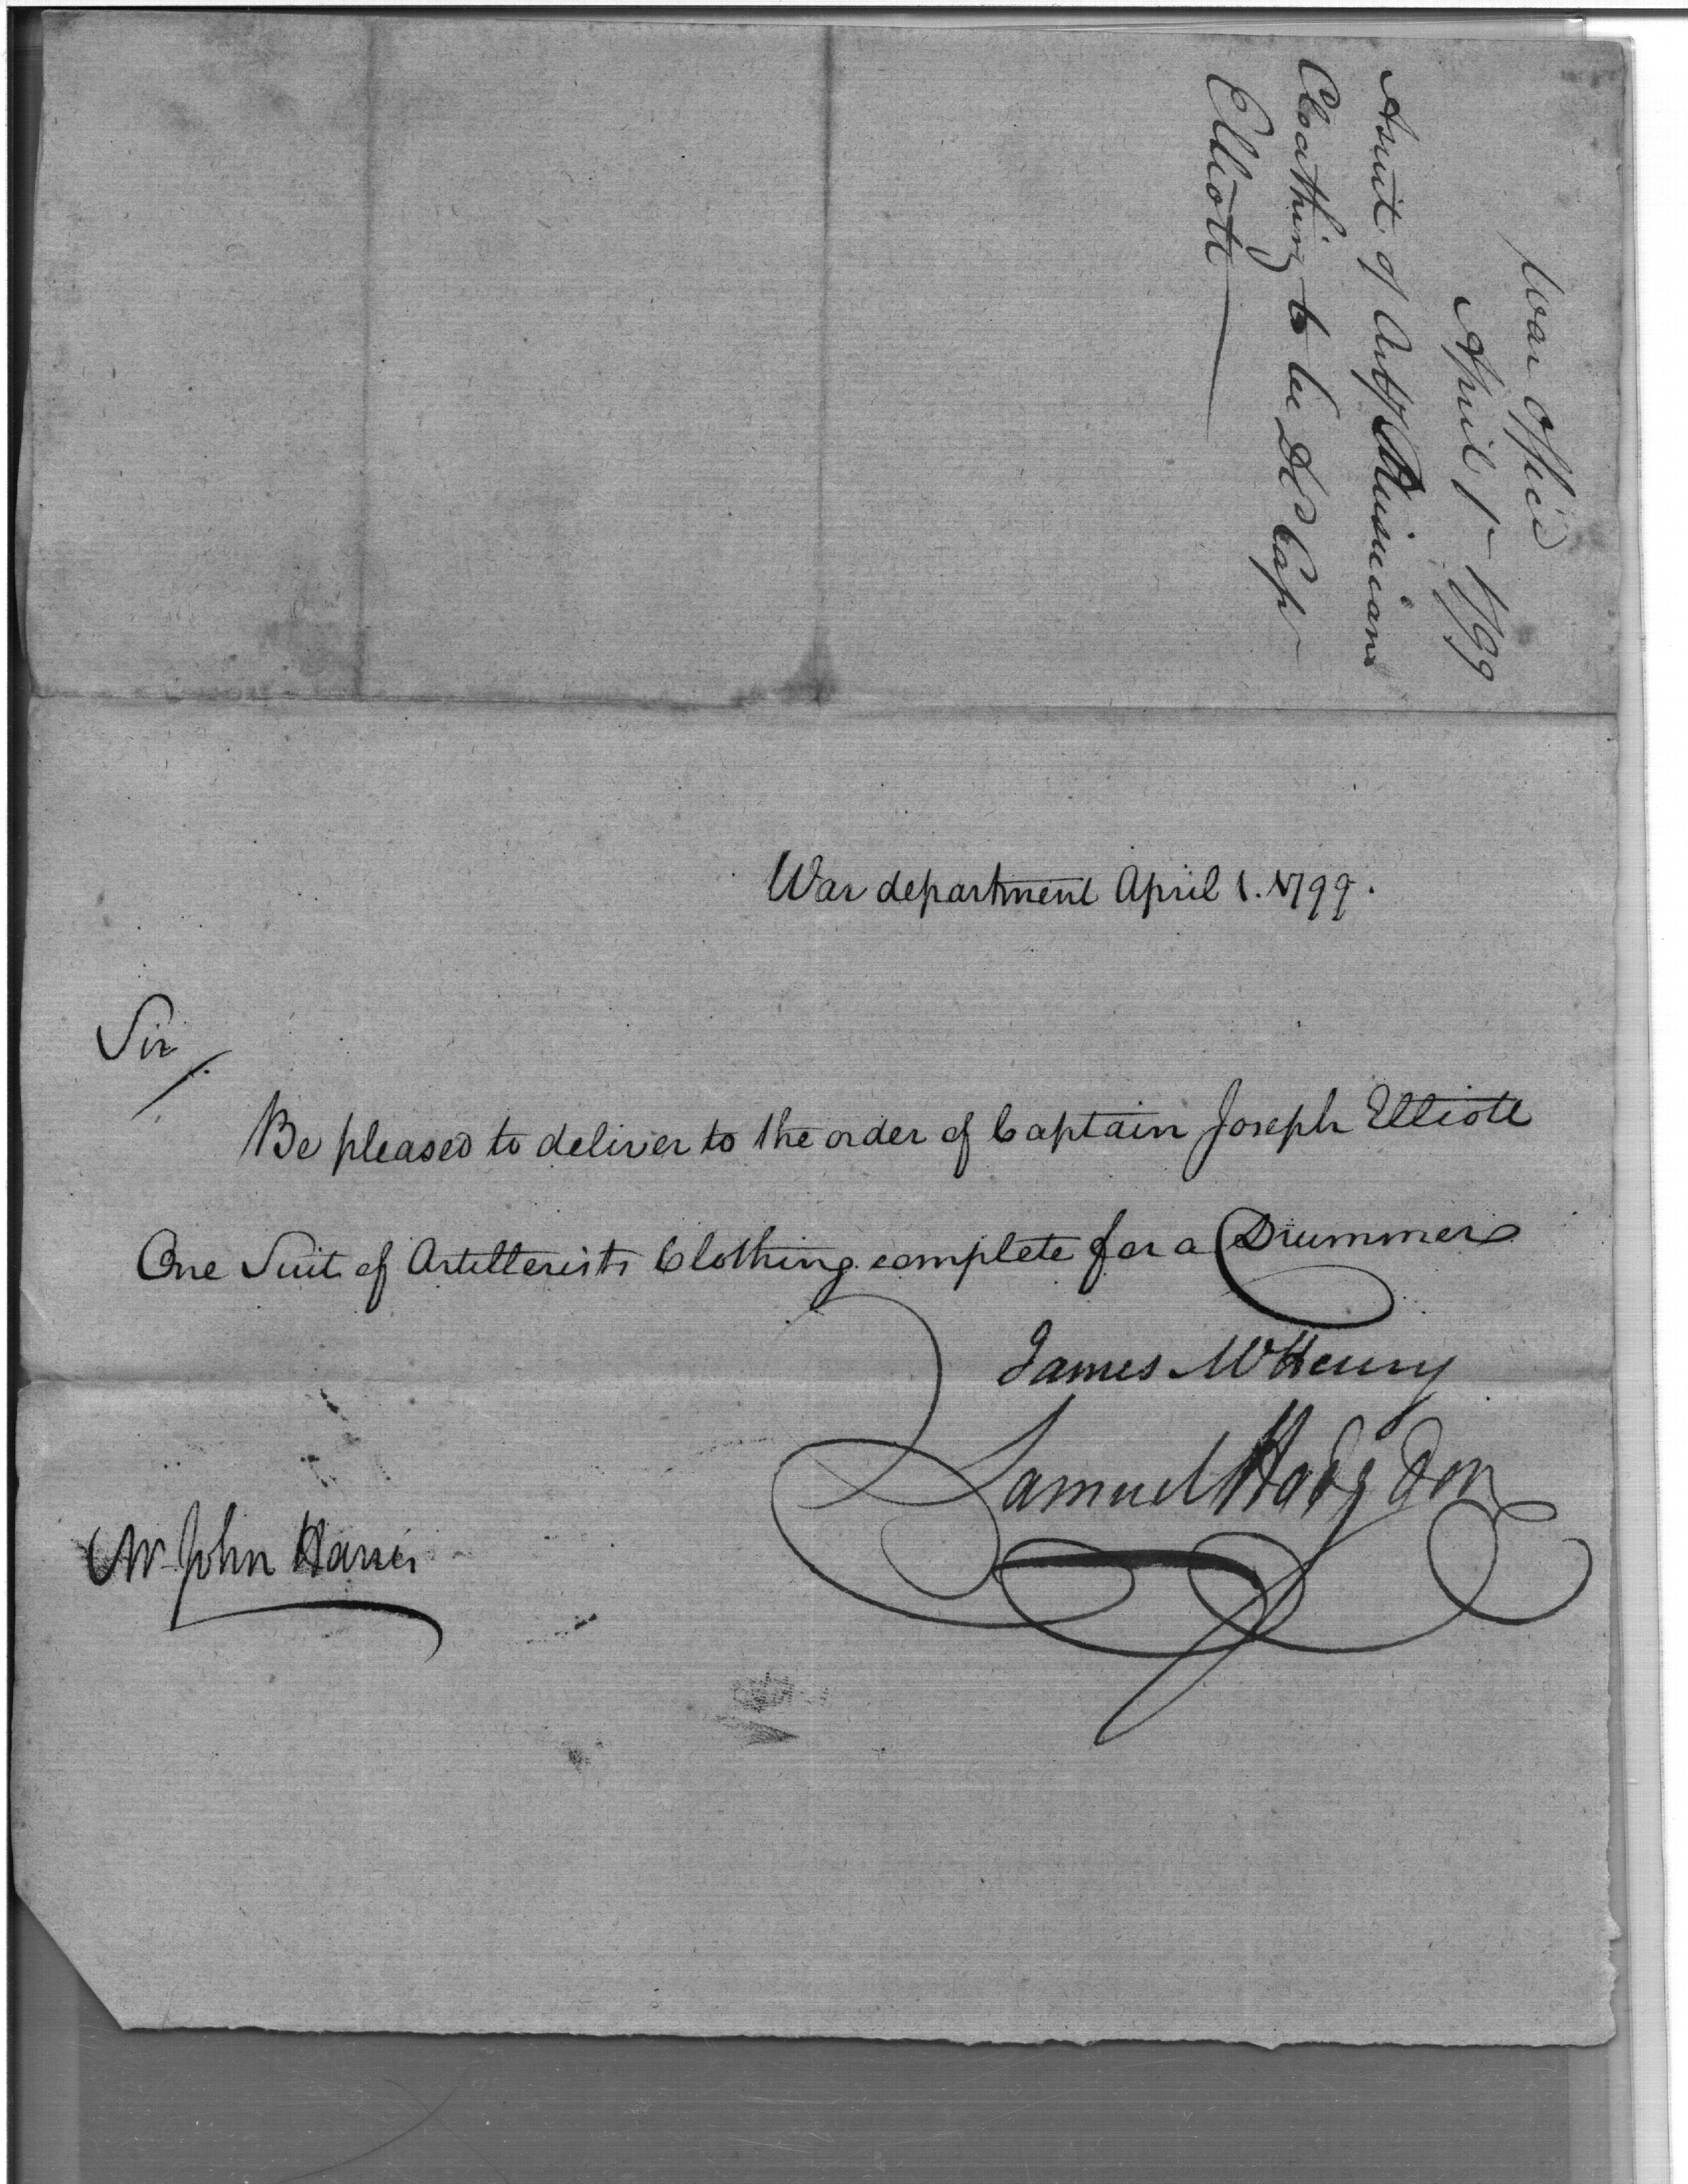 War Office
April 1st 1799
A suit of Arty Musicians
Cloathing to be Dd Capt
Elliott
War department April 1. 1799.
Sir
Be pleased to deliver to the order of Captain Joseph Elliott
One Suit of Artillerists Clothing complete for a Drummer
James McHenry
Samuel Hodgdon
Mr John Harris